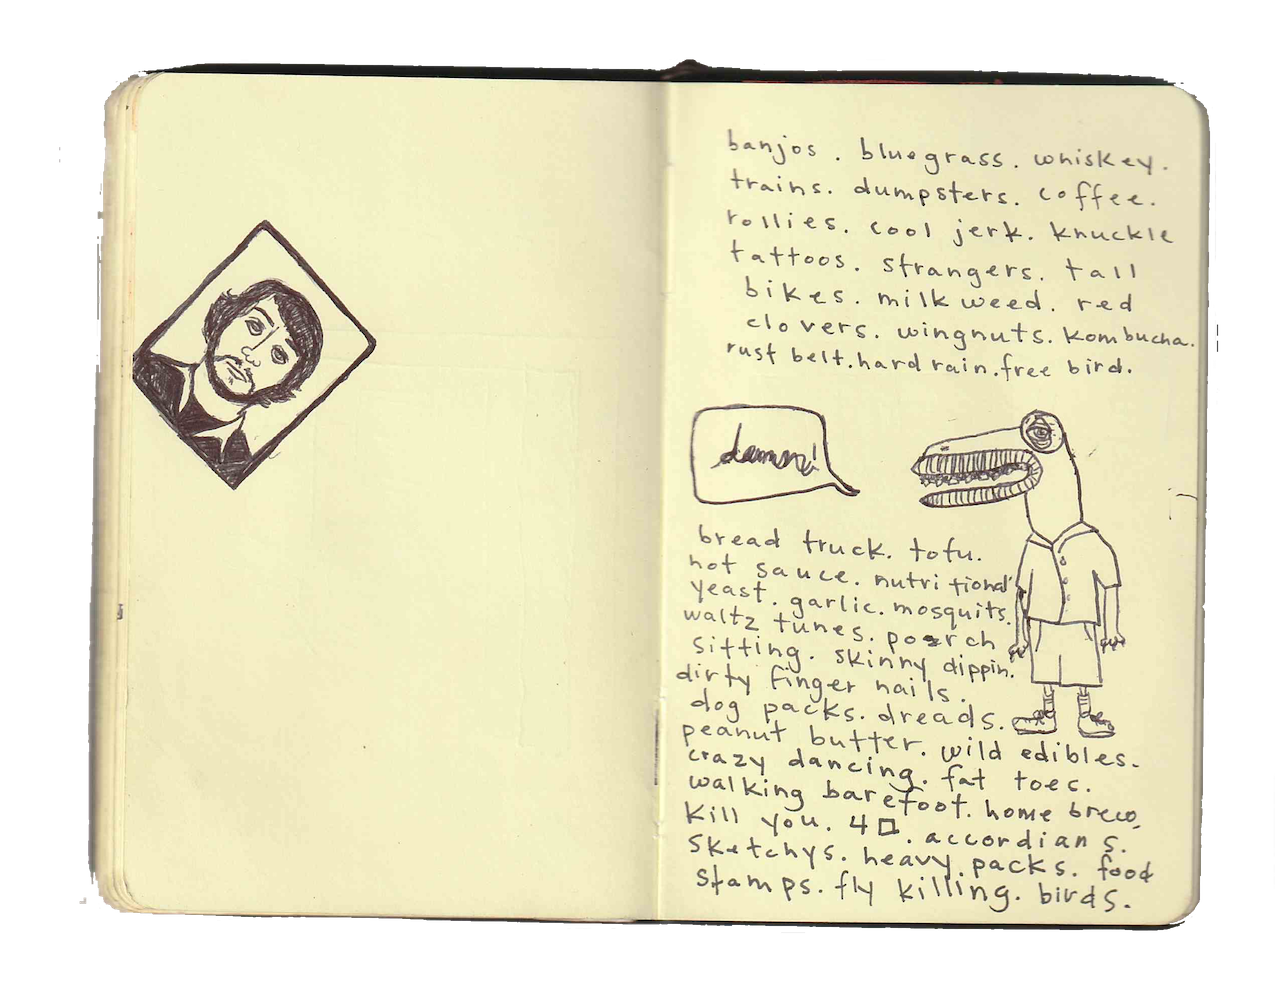 banjos . bluegrass. whiskey.
trains. dumpsters. coffee.
rollies. cool jerk. knuckle
tattoos. strangers. tall
bikes. milkweed. red
clovers. wingnuts. kombucha.
rust belt. hard rain. free bird.
damn!
bread truck. tofu.
hot sauce. nutritional
yeast. garlic. mosquits.
waltz tunes. poarch
sitting. skinny dippin.
dirty finger nails.
dog packs. dreads.
peanut butter. wild edibles.
crazy dancing. fat toes.
walking barefoot. home brew.
kill you. 40. accordians.
sketchys. heavy packs. food
stamps. fly killing. birds.